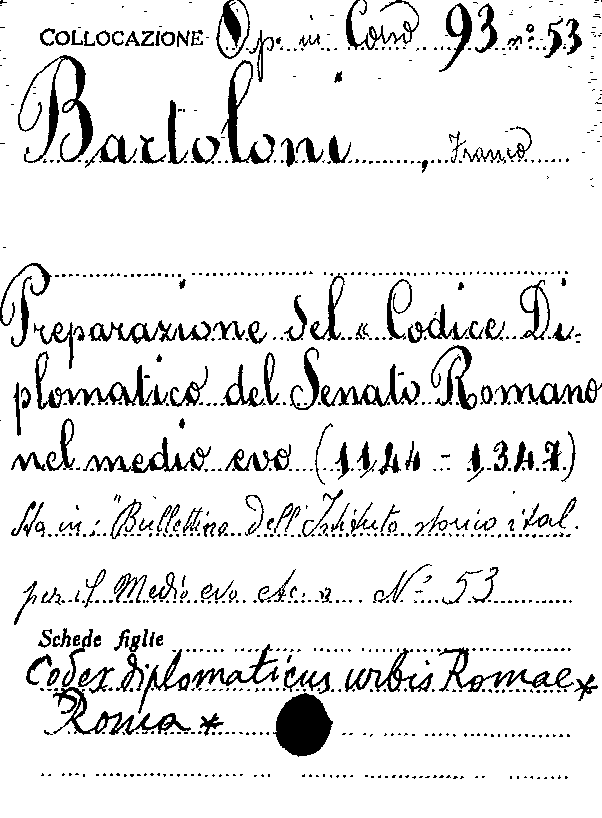 COLLOCAZIONE Op. in Corso 93 nº 53
Bartoloni, Franco
Preparazione del « Codice Di-
plomatico del Senato Romano
nel medio evo (1144 - 1347)
Sta in: "Bullettino dell'Istituto storico ital.
per il Medio evo etc. a Nº 53
Schede figlie
Codex diplomaticus urbis Romae *
Roma *